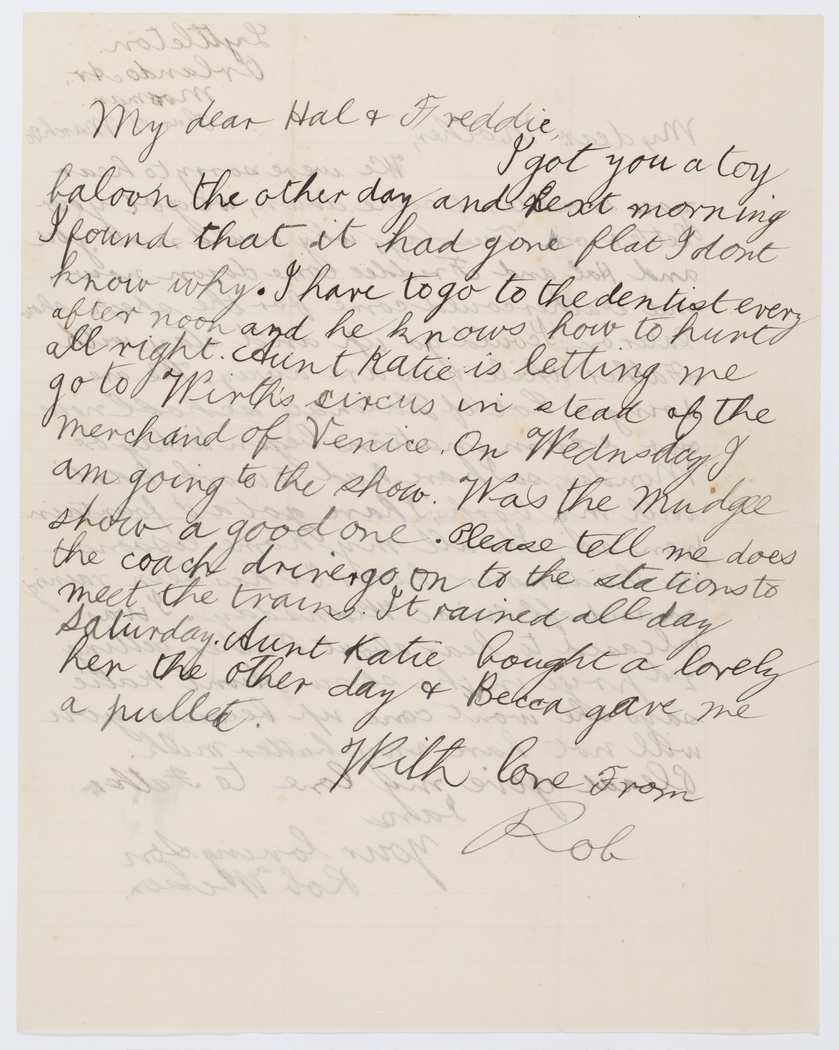 My dear Hal & Freddie,
I got you a toy
baloon the other day and next morning
I found that it had gone flat I dont
know why. I have to go to the dentist every
after noon and he knows how to hurt
all right. Aunt Katie is letting me
go to Wirth's circus in stead of the
merchand of Venice. On Wednsday I
am going to the show. Was the Mudgee
show a good one. Please tell me does
the coach driver go on to the stations to
meet the trains. It rained all day
Saturday. Aunt Katie bought a lovely
hen the other day & Becca gave me
a pullet.
With love From
Rob